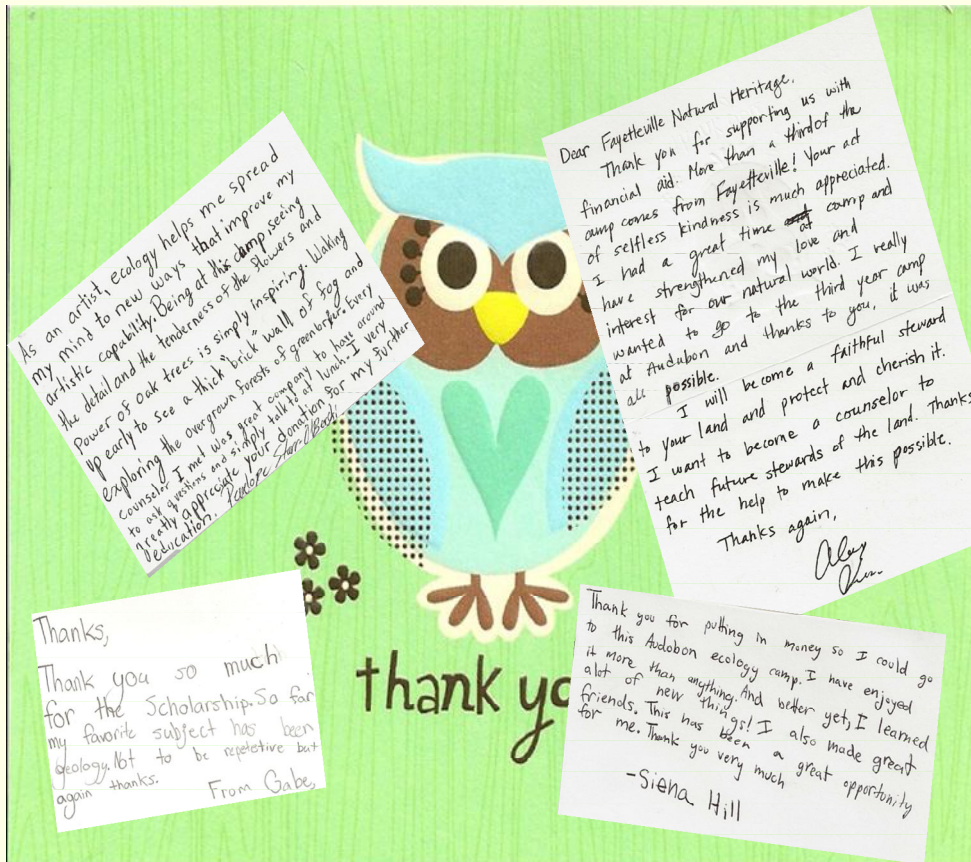 As an artist, ecology helps me spread
my mind to new ways that improve my
artistic capability. Being at this camp, seeing
the detail and the tenderness of the flowers and
power of oak trees is simply inspiring. Waking
up early to see a thick "brick" wall of fog and
exploring the overgrown forests of greenbrier. Every
counselor I met was great company to have around
to ask questions and simply talk to at lunch. I very
greatly appreciate your donation for my further
education. Penelope
Dear Fayetteville Natural Heritage,
Thank you for supporting us with
financial aid. More than a third of the
camp comes from Fayetteville! Your act
of selfless kindness is much appreciated.
I had a great time at camp and
have strengthened my love and
interest for our natural world. I really
wanted to go to the third year camp
at Audubon and thanks to you, it was
all possible.
I will become a faithful steward
to your land and protect and cherish it.
I want to become a counselor to
teach future stewards of the land. Thanks
for the help to make this possible.
Thanks again,
thank yo
Thanks,
Thank you so much
for the Scholarship. So far
my favorite subject has been
geology. Not to be repetetive but
again thanks.
From Gabe,
Thank you for putting in money so I could go
to this Audobon ecology camp. I have enjoyed
it more than anything. And better yet, I learned
alot of new things! I also made great
friends. This has been a great opportunity
for me. Thank you very much
-Siena Hill